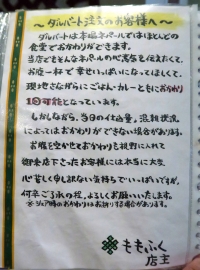 ～ダルバート注文のお客様へ～
ダルバートは本場ネパールではほとんどの
食堂でおかわりができます。
当店でもそんなネパールの心意気を伝えたくて、
お皿一杯で幸せいっぱいになってほしくて、
現地さながらにごはん・カレーともにおかわり
1回可能となっています。
しかしながら、当日のイカ量、混雑状況
によってはおかわりができない場合があります。
お腹を空かせておかわりを視野に入れて
御来店下さったお客様には本当に大変
心苦しく申し訳ない気持ちでいっぱいですが、
何卒ご了承の程、よろしくお願いいたします。
※シェア時のおかわりはお断りする場合があります。
ももふく
店主